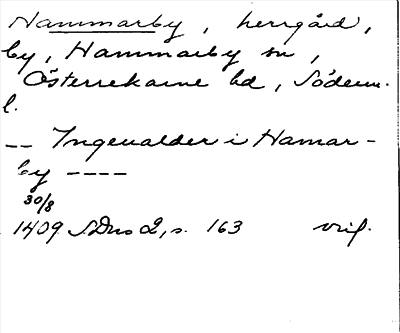 Hammarby, herrgård,
by, Hammarby sn,
Österrekarne hd, Söderm.
l.
-- Ingeualder i Hamar-
by ----
30/8
1409 SDns 2, s. 163 orig.